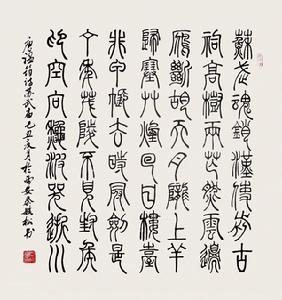 蘇武魂銷漢使前古
祠高樹兩茫然雲邊
雁斷胡天月隴上羊
歸塞草煙回日樓臺
非甲帳去時冠劍是
丁年茂陵不見封侯
印空向秋波哭逝川
唐溫筠詩蘇武廟己丑夏月於西安松书